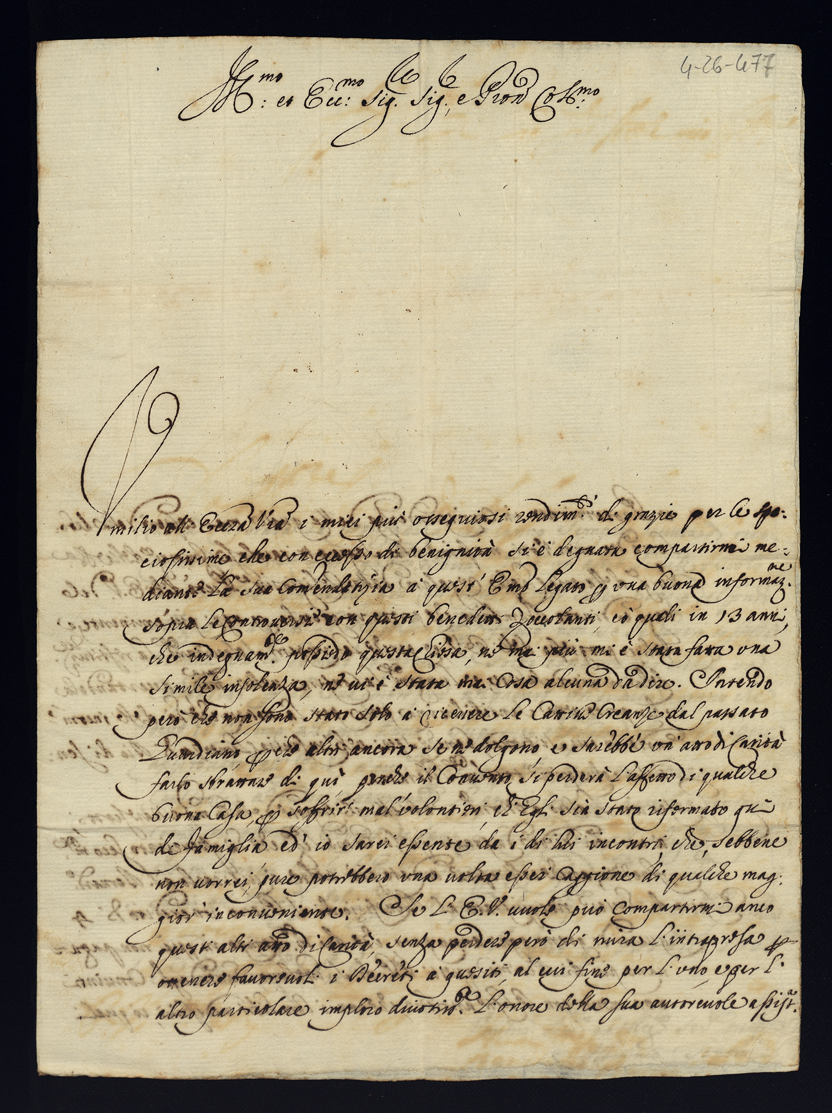 4-26-477
Ill:mo et Ecc:mo Sig. Sig., e Pron Col:mo
Umilio all' Eccza V'ra i miei più ossequiosi rendim.ti di grazie per le spe:
ciosissime che con eccesso di benignità si è degnata compartirmi me:
diante la sua Comendatizia a quest' Emo Legato p una buona informaz.ne
sopra le Controversie con questi benedetti Zoccolanti, da quali in 13 anni,
che indegnam.te possiedo questa Chiesa, no mai più mi è stata fatta una
simile insolenza, ne vi è stata mai cosa alcuna da dire. Intendo
però che non sono stato solo a ricevere le Cattive Creanze dal passato
Guardiano, perche altri ancora se ne dolgono e sarebbe un' atto di Carità
farlo sfrattare di quì, perche il Convento si perderà l'affetto di qualche
buona Casa p soffrir mal volontieri, ch' Egli sia stato riformato qui
de famiglia ed' io sarei essente da i di lui incontri che, sebbene
non vorrei, pure potrebbero una volta esser caggione di qualche mag:
gior' inconveniente. Se L' E. V. vuole può compartirmi anco
quest' altr' atto di Carità, senza perdere però di mira l'intrapresa p
ottenere favorevoli i Decreti a quesiti al cui fine per l' uno, e per l'
altro particolare imploro divotam.te l' onore della sua autorevole assist.